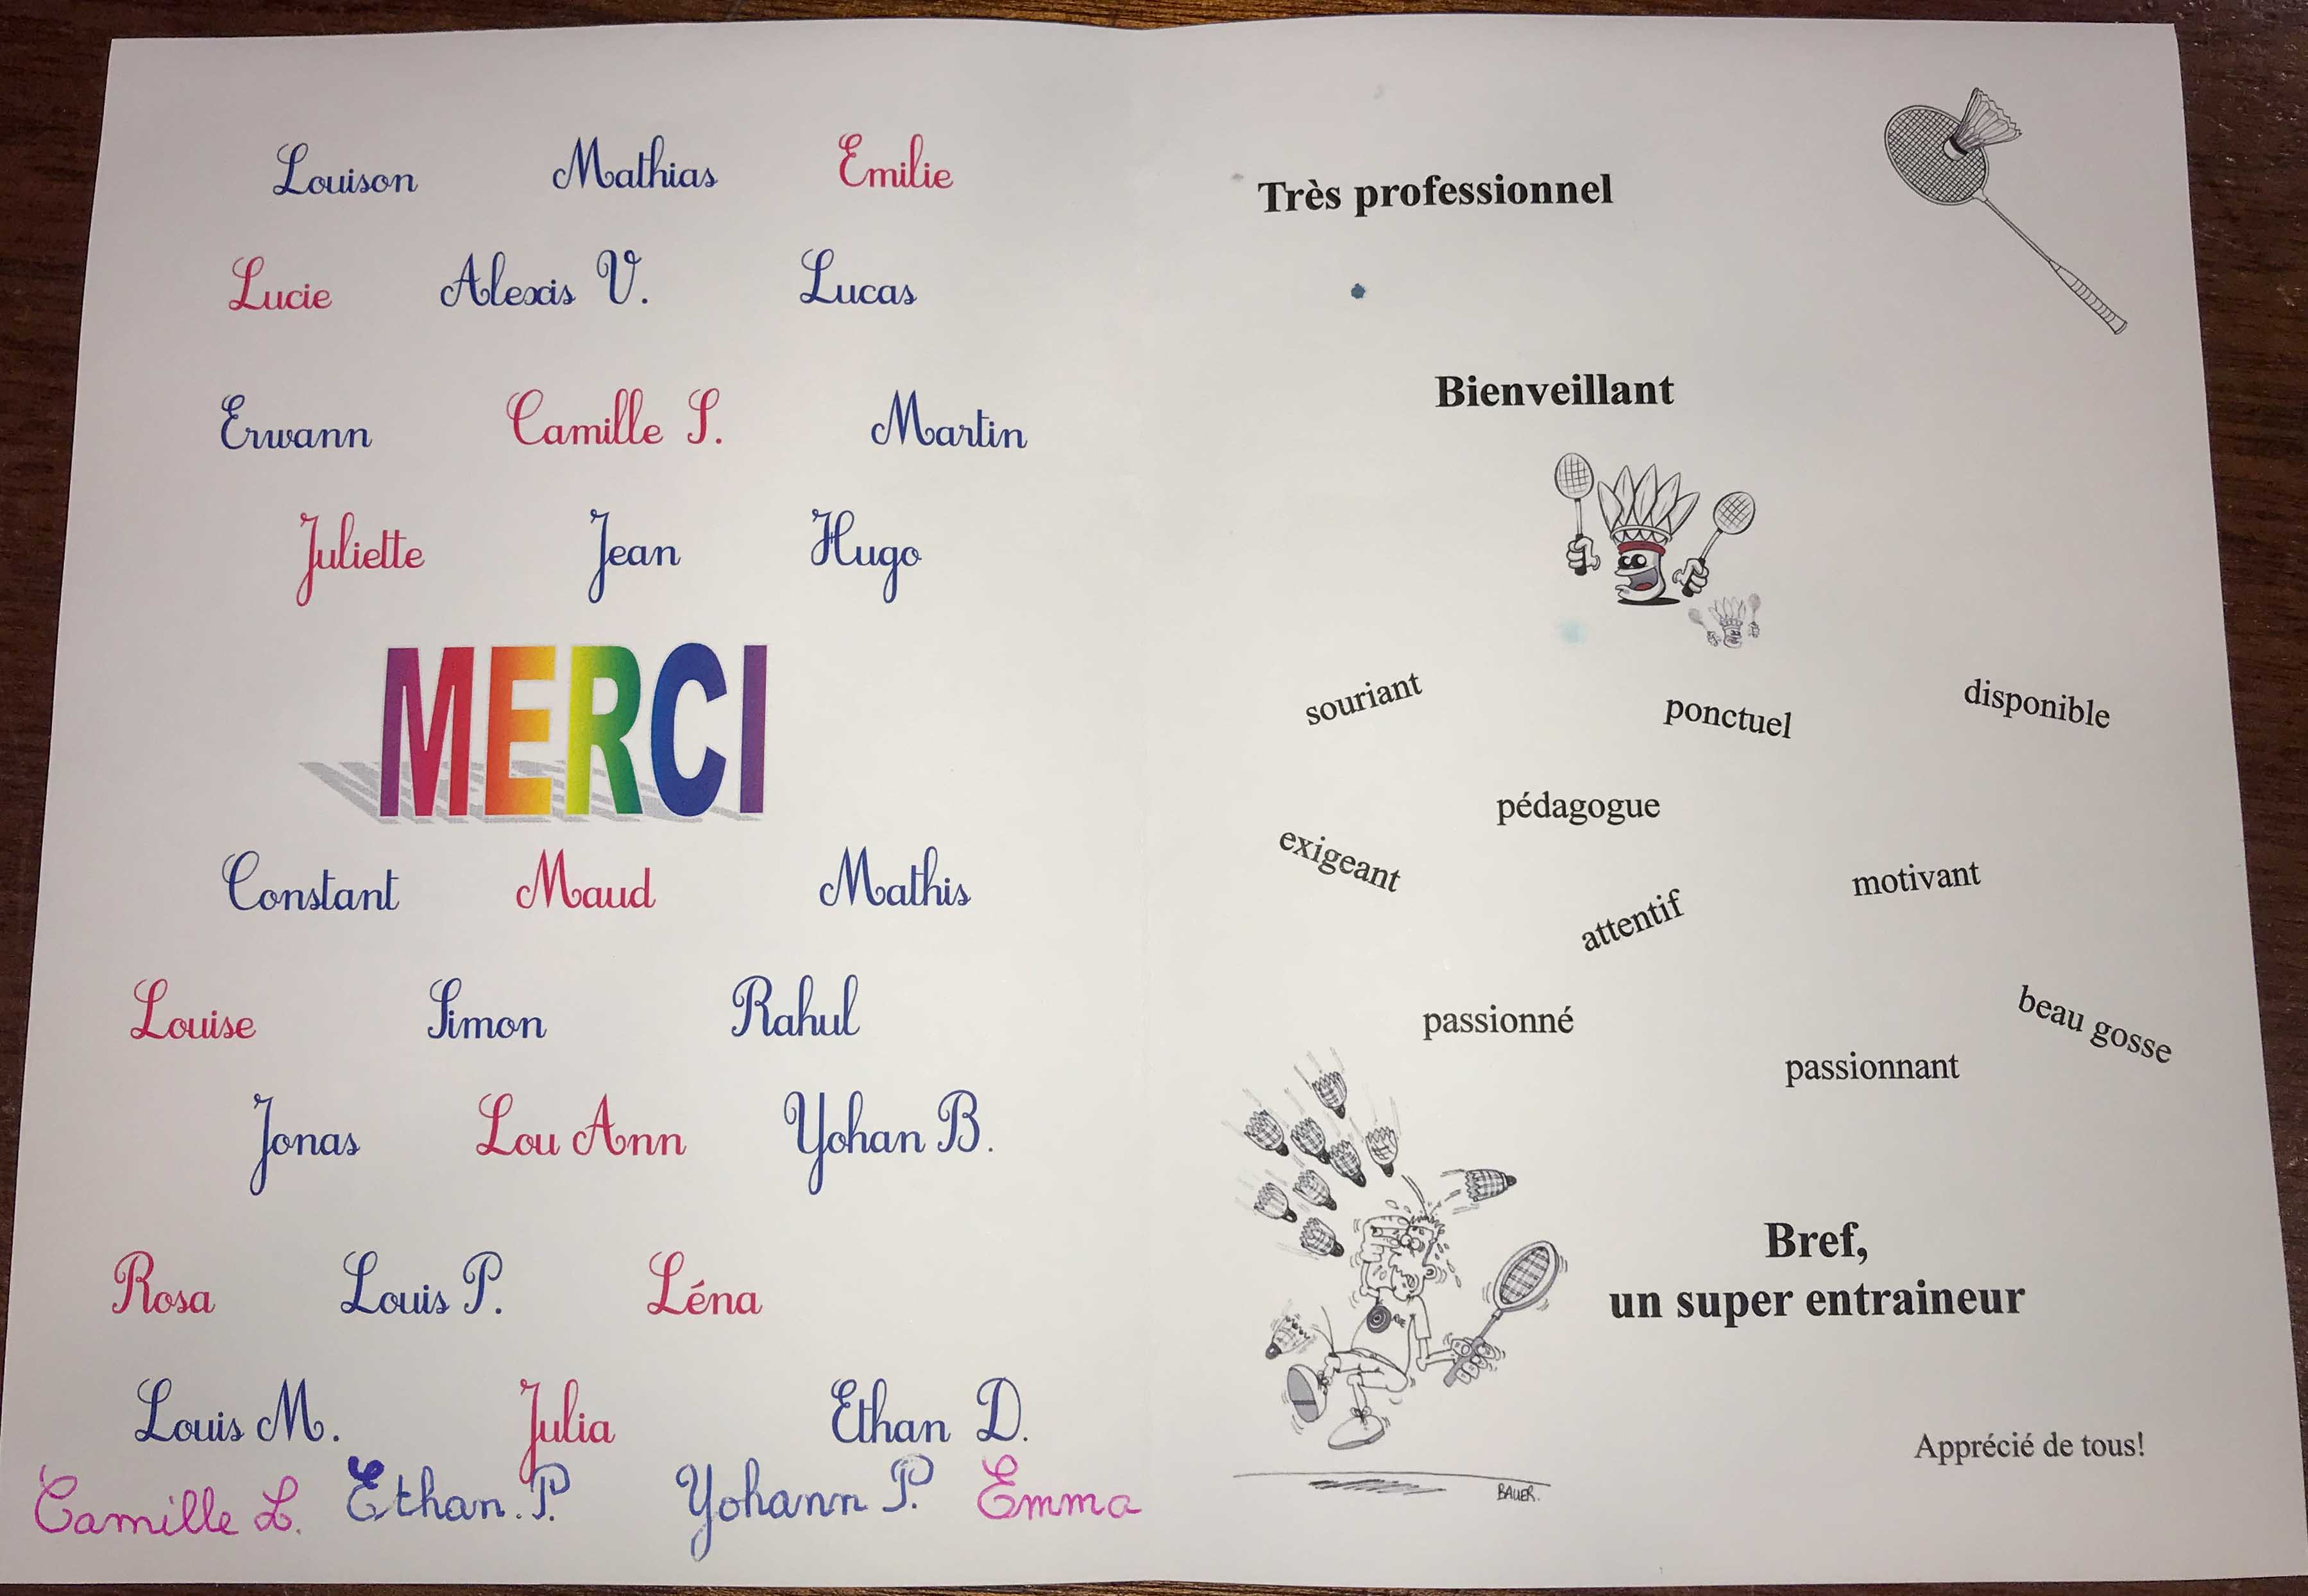 Louison Mathias Emilie
Lucie Alexis V. Lucas
Erwann Camille S. Martin
Juliette Jean Hugo
MERCI
Constant Maud Mathis
Louise Simon Rahul
Jonas Lou Ann Yohan B.
Rosa Louis P. Léna
Louis M. Julia Ethan D.
Camille L. Ethan. P. Yohann P. Emma
Très professionnel
Bienveillant
souriant ponctuel disponible
pédagogue
exigeant motivant
attentif
passionné beau gosse
passionnant
Bref,
un super entraineur
Apprécié de tous!
BAUER.